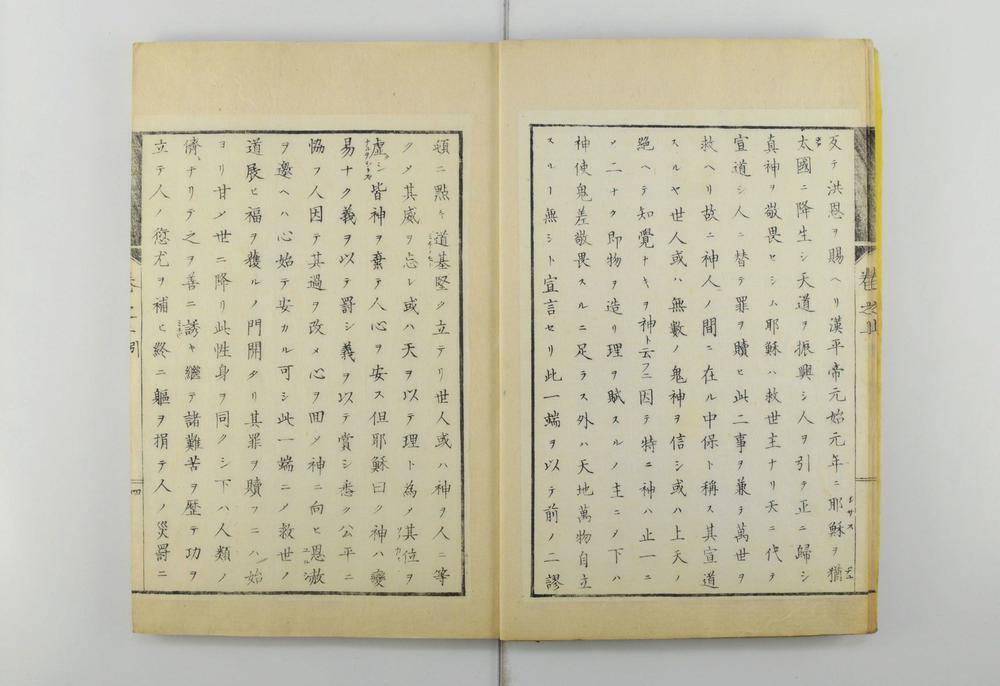 又テ洪恩ヲ賜ヘリ漢平帝元始元年ニ耶穌ヲ猶
太國ニ降生シ天道ヲ振興シ人ヲ引ヲ正ニ歸シ
真神ヲ敬畏セシム耶穌ハ救世主ナリ天ニ代テ
宣道シ人ニ替テ罪ヲ贖ヒ此二事ヲ兼テ萬世ヲ
救ヘリ故ニ神人ノ間ニ在ル中保ト稱ス其宣道
スルヤ世人或ハ無數ノ鬼神ヲ信シ或ハ上天ノ
絶ヘテ知覺ナキヲ神ト云フニ因テ特ニ神ハ止一ニ
ソ二ナク即物ヲ造リ理ヲ賦スルノ主ニメ下ハ
神使鬼差敬畏スルニ足ラス外ハ天地萬物自立
スルー無シト宣言セリ此一端ヲ以テ前ノ二謬
頓ニ點キ道基堅ク立テリ世人或ハ神ヲ人ニ等
クメ其威ヲ忘レ或ハ天ヲ以テ理ト為メ其位ヲ
虚シ皆神ヲ棄テ人心ヲ安ス但耶穌曰ク神ハ變
易ナク義ヲ以テ罰シ義ヲ以テ賞シ悉ク公平ニ
恊フ人因テ其過ヲ改メ心ヲ回メ神ニ向ヒ恩赦
ヲ邀ヘハ心始テ安カル可シ此一端ニメ救世ノ
道展ヒ福ヲ獲ルノ門開タリ其罪ヲ贖フニハ始
ヨリ甘メ世ニ降リ此性身ヲ同クシ下ハ人類ノ
儕ナリテ之ヲ善ニ誘キ繼テ諸難苦ヲ歴テ功ヲ
立テ人ノ愆尤ヲ補ヒ終ニ軀ヲ捐テ人ノ災罰ニ